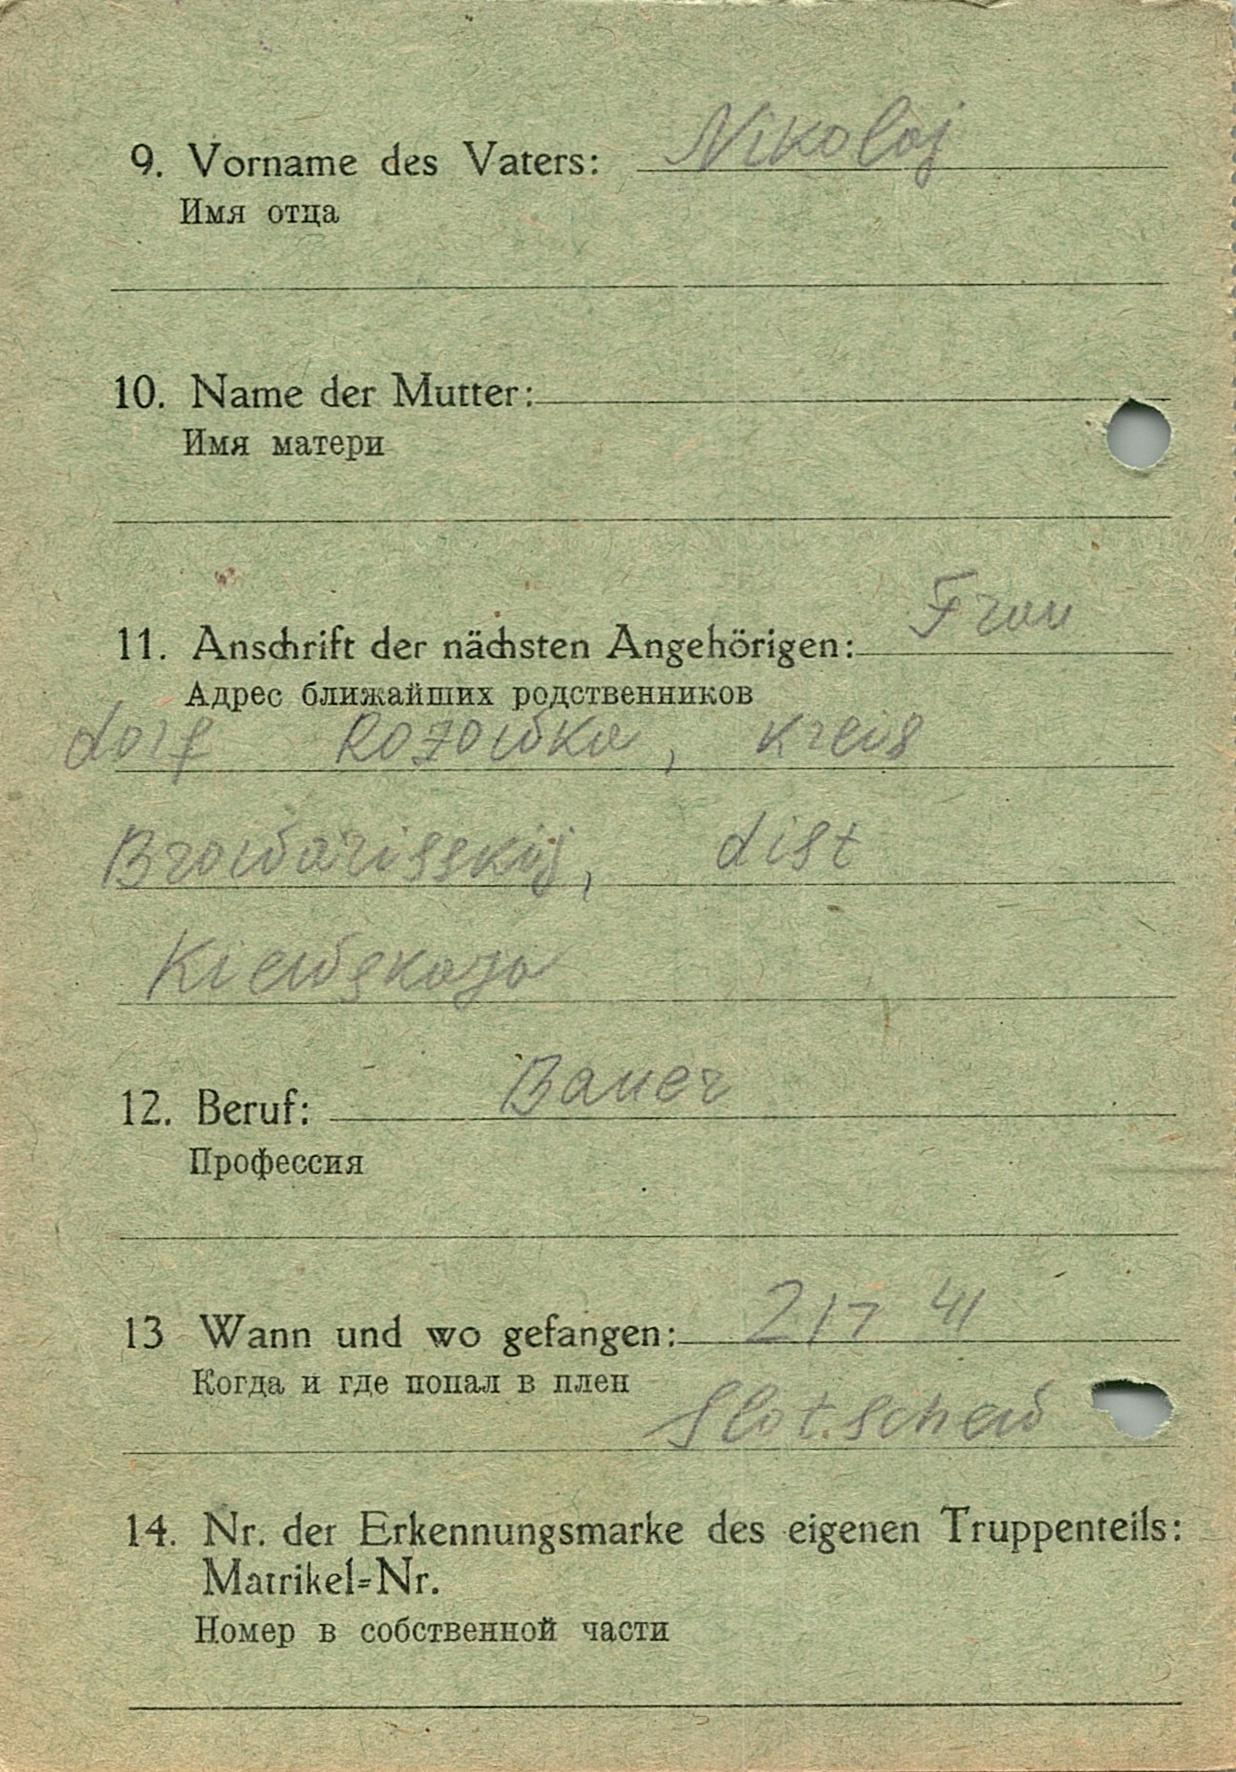 9. Vorname des Vaters: Nikoloj
Имя отца
10. Name der Mutter:
Имя матери
11. Anschrift der nächsten Angehörigen: Frau
Адрес ближайших родственников
dorf Rozowka, kreis
Browarisskij, dist
Kiewskaja
12. Beruf: Bauer
Профессия
13 Wann und wo gefangen: 2/7 41
Когда и где попал в плен
Slotschew
14. Nr. der Erkennungsmarke des eigenen Truppenteils:
Matrikel=Nr.
Номер в собственной части